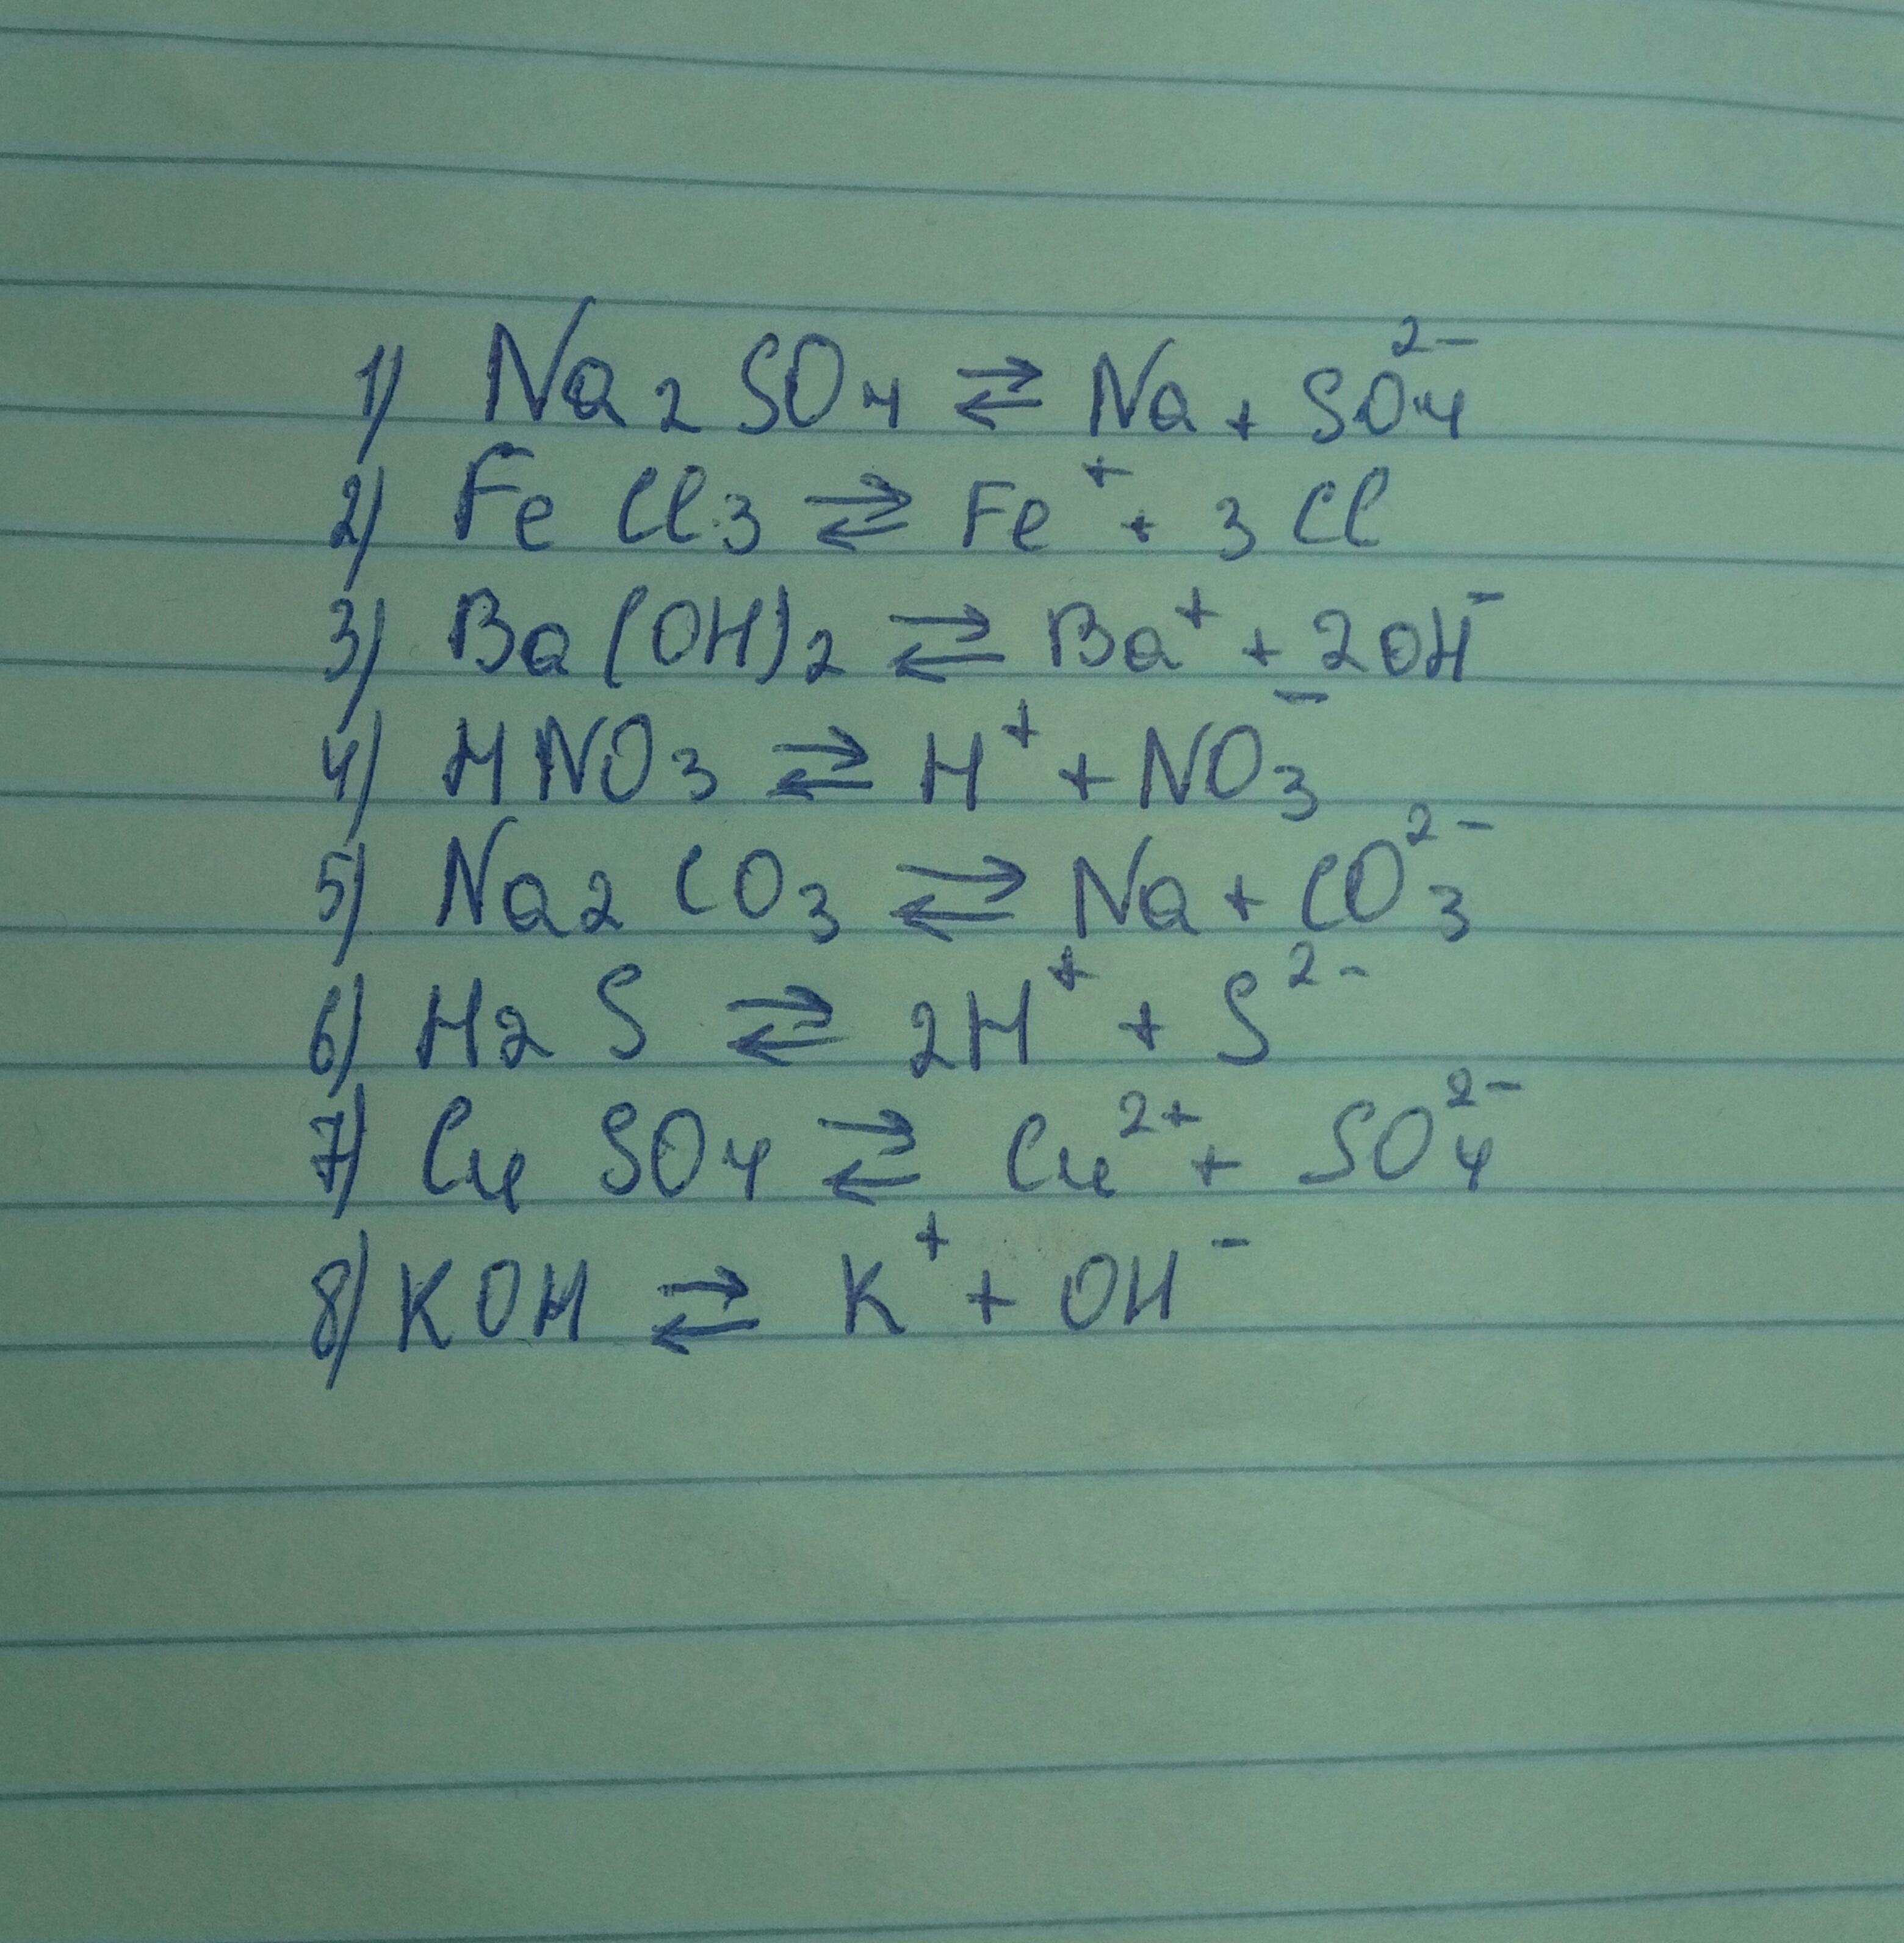 1) Na2SO4 ⇄ Na + SO4²⁻
2) FeCl3 ⇄ Fe⁺ + 3Cl
3) Ba(OH)2 ⇄ Ba⁺ + 2OH⁻
4) HNO3 ⇄ H⁺ + NO3⁻
5) Na2CO3 ⇄ Na + CO3²⁻
6) H2S ⇄ 2H⁺ + S²⁻
7) CuSO4 ⇄ Cu²⁺ + SO4²⁻
8) KOH ⇄ K⁺ + OH⁻